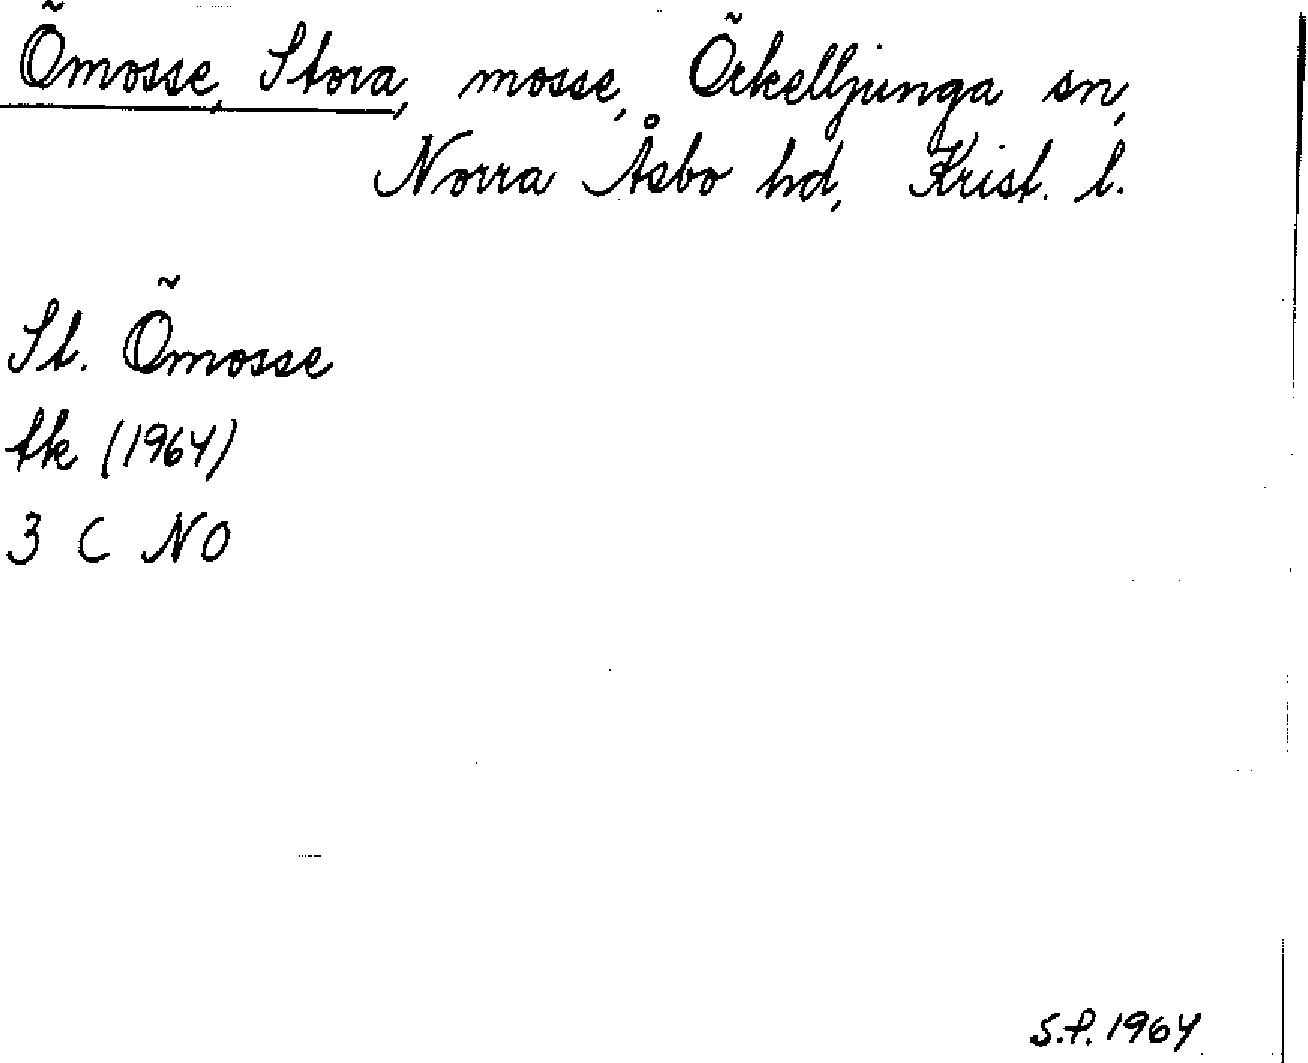 Ömosse, Stora, mosse, Örkelljunga sn,
Norra Åsbo hd, Krist. l.
St. Ömosse
tk (1964)
3 C NO
S.P. 1964